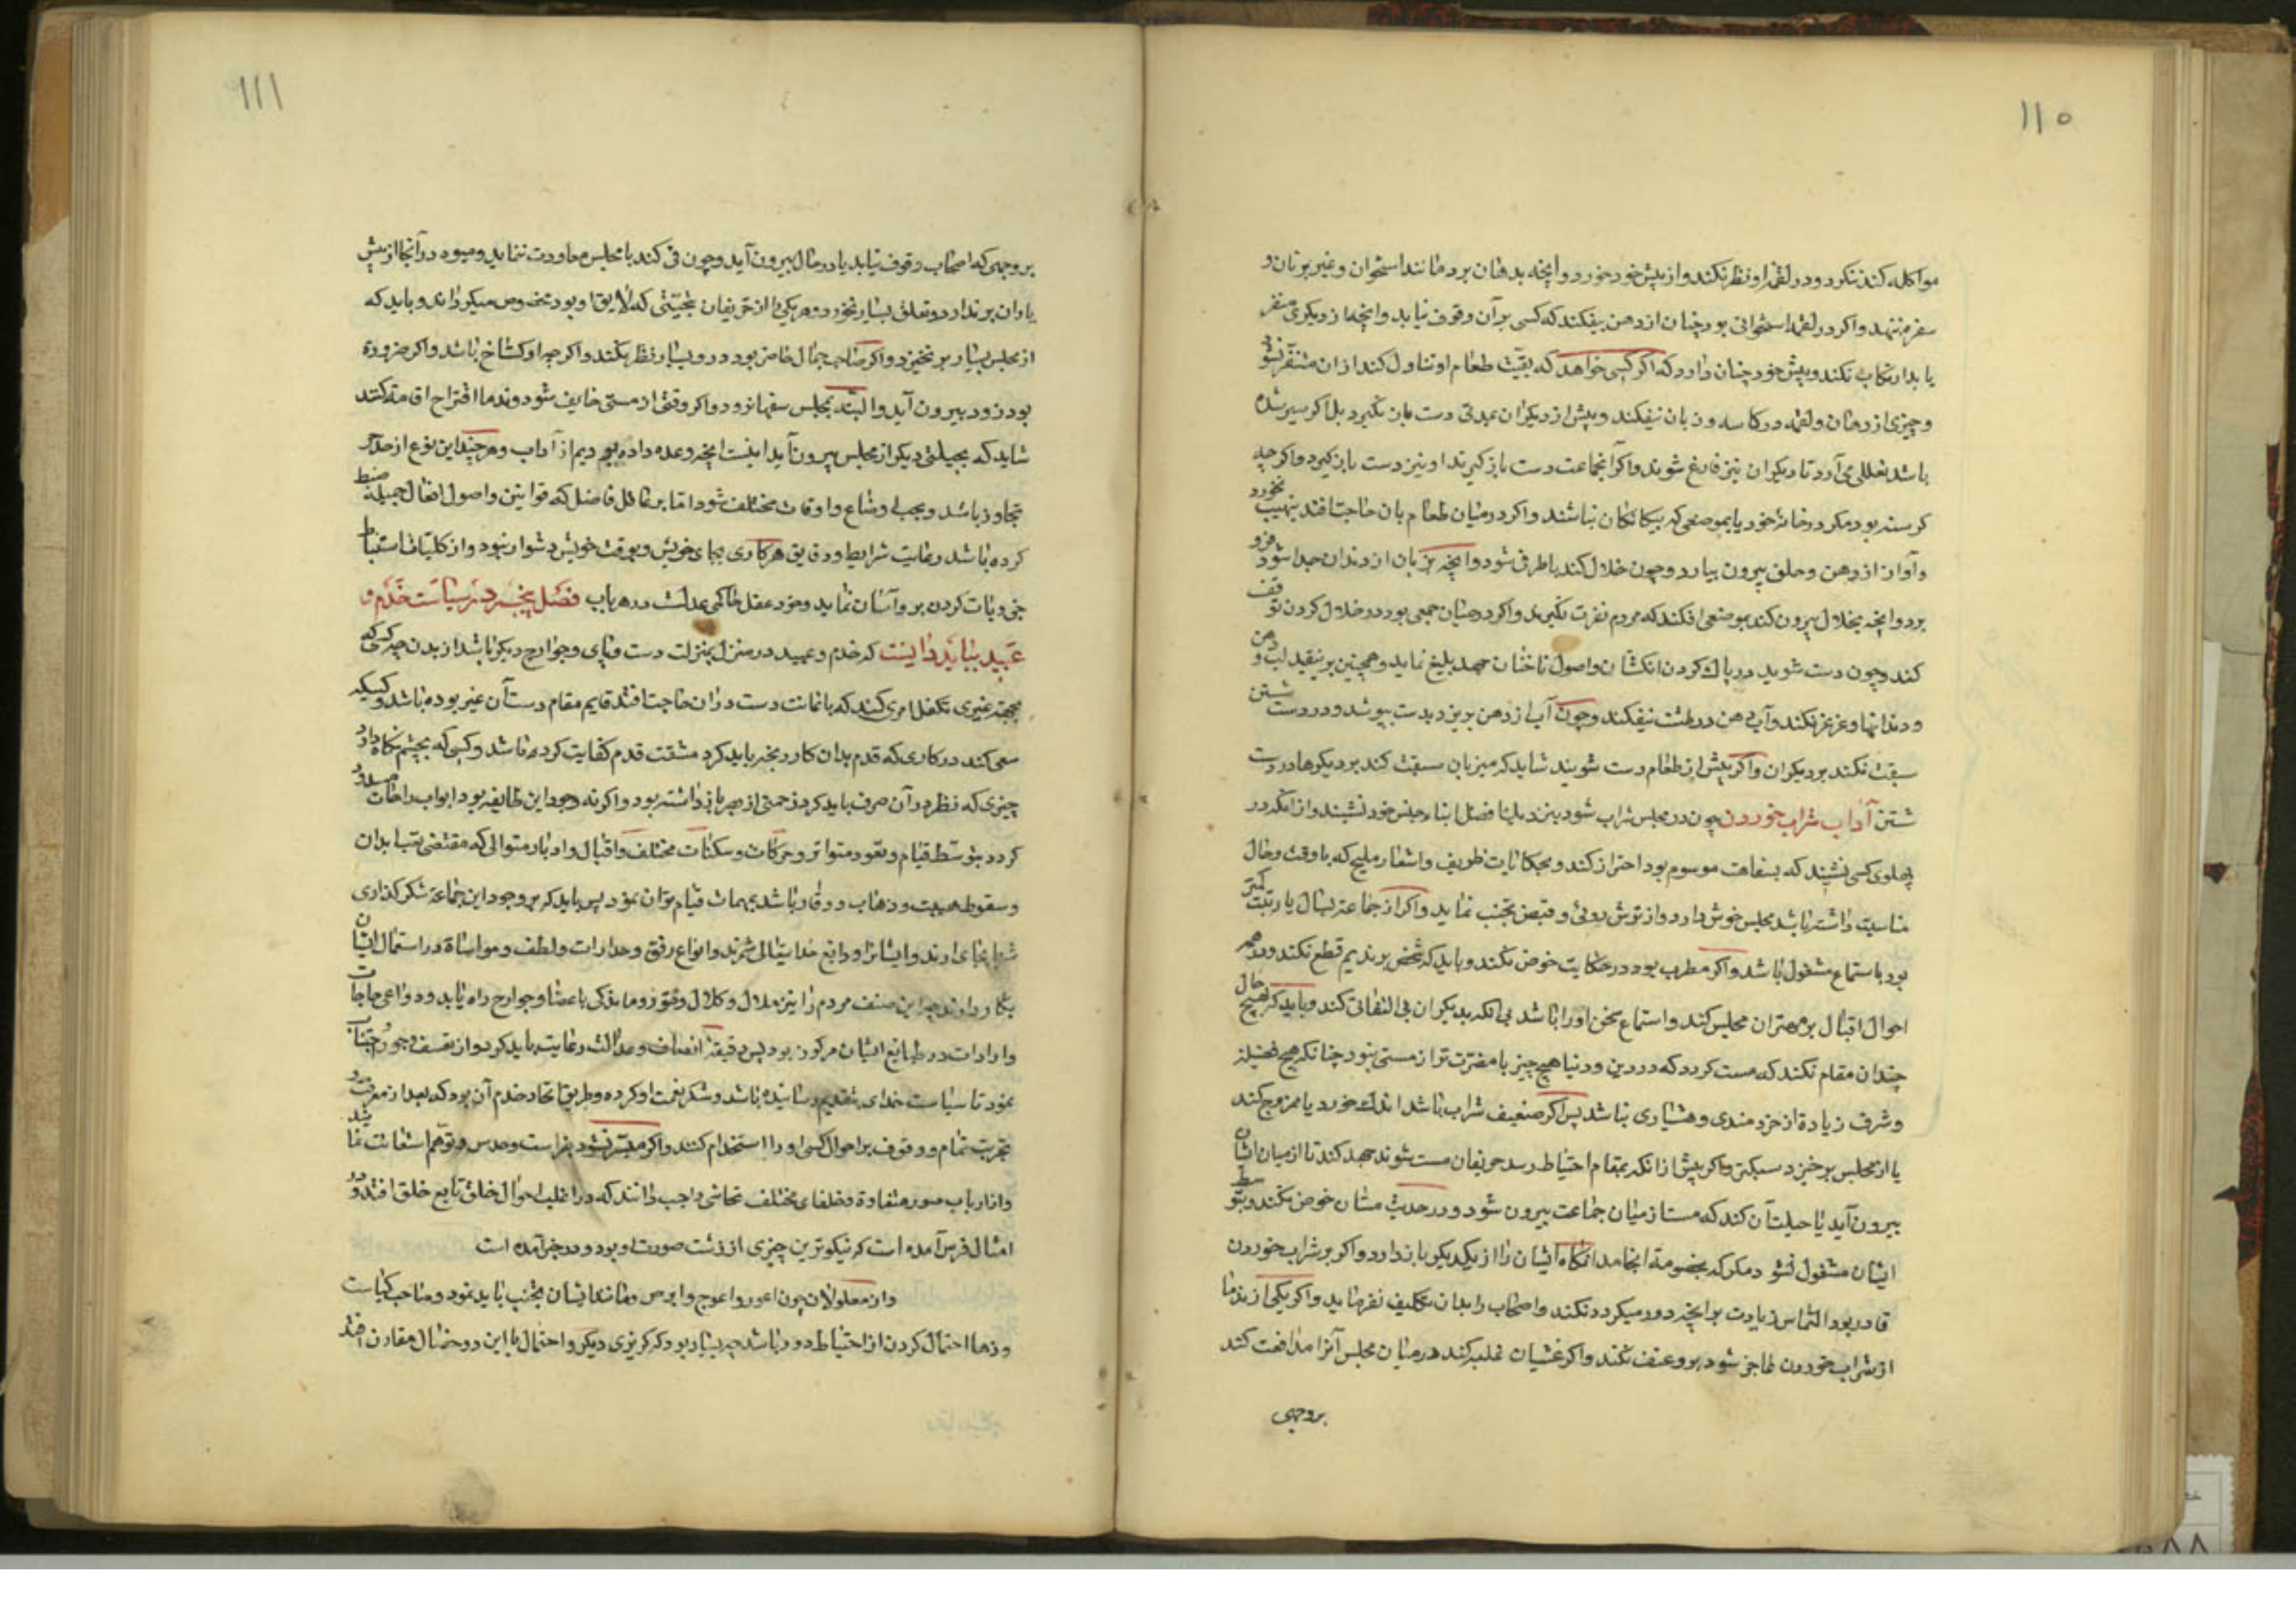 ۱۱۰
مواکله کند ننکرد و در لقمه او نظر نکند و از پیش خود خورد و آنچه بدهان برد مانند استخوان و غیر بر نان و
سفره ننهد و اکر در لقمه استخوانی بود چنان از دهن بیفکند که کسی بر آن وقوف نیابد و آنچه از دیکری منفر
یابد ارتکاب نکند و پیش خود چنان دارد که اکر کسی خواهد که بقیّت طعام او تناول کند از ان متنفر نشود
و چیزی از دهان و لقمه در کاسه و بر نان نیفکند و پیش از دیکران بمدتی دست باز نکیرد بل اکر سیر شده
باشد تعللی می آرد تا دیکران نیز فارغ شوند و اکر آنجماعت دست باز کیرند او نیز دست باز کیرد و اکر چه
کرسنه بود مکر در خانه خود یا بموضعی که بیکانکان نباشند و اکر در میان طعام بان حاجت افتد بنهیب نخورد
و آواز از دهن و حلق بیرون نیارد و چون خلال کند با طرفی شود و آنچه بزبان از دندان جدا شود فرو
برد و آنچه بخلال بیرون کند بموضعی افکند که مردم نفرت نکیرند و اکر در میان جمعی بود در خلال کردن توقف
کند و چون دست شوید در پاک کردن انکشتان و اصول ناخنان جهد بلیغ نماید و همچنین بر تنقیه لب و دهن
و دندانها و غرغره نکند و آب دهن در طشت نیفکند و چون آب از دهن بریزد بدست بپوشد و در دست شستن
سبقت نکند بر دیکران و اکر پیش از طعام دست شویند شاید که میزبان سبقت کند بر دیکرها در دست
شستن آداب شراب خوردن چون در مجلس شراب شود بنزدیک افضل ابناء جنس خود نشیند و از انکه در
پهلوی کسی نشیند که بسفاهت موسوم بود احتراز کند و بحکایات ظریف و اشعار ملیح که با وقت و حال
مناسبت داشته باشد مجلس خوش دارد و از ترش روئی و قبض تجنب نماید و اکر از جماعت بسال یا رتبت کمتر
بود باستماع مشغول باشد و اکر مطرب بود در حکایت خوض نکند و باید که سخن بر ندیم قطع نکند و در همه
احوال اقبال بر مهتران مجلس کند و استماع سخن او را باشد بی انکه بدیکران بی التفاتی کند و باید که بهیچ حال
چندان مقام نکند که مست کردد که در دین و دنیا هیچ چیز با مضرت تر از مستی نبود چنانکه هیچ فضیلت
و شرف زیادة از خردمندی و هشیاری نباشد پس اکر ضعیف شراب باشد اندک خورد یا ممزوج کند
یا از مجلس برخیزد سبکتر و اکر پیش از انکه بمقام احتیاط رسد حریفان مست شوند جهد کند تا از میان ایشان
بیرون آید یا حیلت آن کند که مست از میان جماعت بیرون شود و در حدیث مستان خوض نکند و بتوسط
ایشان مشغول نشود مکر که بخصومة انجامد انکاه ایشان را از یکدیکر باز دارد و اکر بر شراب خوردن
قادر بود التماس زیادت بر آنچه دور میکردد نکند و اصحاب را بدان تکلیف نفرماید و اکر یکی از ندما
از شراب خوردن عاجز شود بر و عنف نکند و اکر غشیان غلبه کند در میان مجلس آنرا مدافعت کند
بروجهی
۱۱۱
بر وجهی که اصحاب وقوف نیابد یا در حال بیرون آید و چون قی کند با مجلس معاودت ننماید و میوه در آنجا از پیش
یاران بر ندارد و تعلق بسیار نخورد و هر یکی را از حریفان بتحیّتی که لایق او بود مخصوص میکرداند و باید که
از مجلس بسیار بر نخیزد و اکر صاحب جمال حاضر بود در و بسیار نظر نکند و اکر چه او کستاخ باشد و اکر ضرورة
بود زود بیرون آید و البته بمجلس سفها نرود و اکر وقتی از مستی خایف شود و ندما اقتراح اقامت کنند
شاید که بحیلتی دیکر از مجلس بیرون آید اینست آنچه وعده داده بودیم از آداب و هر چند این نوع از حد
تجاوز باشد و بحسب اوضاع و اوقات مختلف شود اما بر عاقل فاضل که قوانین و اصول افعال جمیله ضبط
کرده باشد رعایت شرایط و دقایق هر کاری بجای خویش و بوقت خویش دشوار نبود و از کلیات استنباط
جزویات کردن بر و آسان نماید و خود عقل حاکمی عدلست در هر باب فصل پنجم در سیاست خدم و
عبید بباید دانست که خدم و عبید در منزل بمنزلت دست و پای و جوارح دیکر باشد از بدن چه کسی که
بجهة غیری تکفل امری کند که باعانت دست در ان حاجت افتد قایم مقام دست آن غیر بوده باشد و کسیکه
سعی کند در کاری که قدم بدان کار رنجه باید کرد مشقت قدم کفایت کرده باشد و کسی که بچشم نکاه دارد
چیزی که نظر در آن صرف باید کرد زحمتی از بصر باز داشته بود و اکر نه وجود این طایفه بود ابواب راحات مسدود
کردد بتوسط قیام و قعود متواتر و حرکات و سکنات مختلف و اقبال و ادبار متوالی که مقتضی تعب ابدان
و سقوط هیبت و ذهاب و وقار باشد بمهمات قیام توان نمود پس باید که بر وجود این جماعة شکر کذاری
شرط بجای ارند و ایشانرا ودایع خدایتعالی شمرند و انواع رفق و مدارات و لطف و مواساة در استعمال ایشان
بکار دارند چه این صنف مردم را نیز ملال و کلال و فتور و ماندکی باعضا و جوارح راه یابد و دواعی حاجات
و ارادات در طبایع ایشان مرکوز بود پس دقیقهٔ انصاف و عدالت رعایت باید کرد و از تعسف و جور اجتناب
نمود تا سیاست خدای بتقدیم رسانیده باشد و شکر نعمت او کرده و طریق اتخاذ خدم آن بود که بعد از معرفت
تجربت تمام و وقوف بر احوال کسی او را استخدام کنند و اکر میسر نشود بفراست و حدس و توهم استعانت نماید
و از ارباب صور متفاوة و خلقهای مختلف تحاشی واجب دانند که در اغلب احوال خلق تابع خلق افتد و در
امثال فرس آمده است که نیکوترین چیزی از زشت صورت او بود و در خبر آمده است
و از معلولان چون اعور و اعوج و ابرص و مانند ایشان تجنب باید نمود و صاحب کیاست
و دها احتمال کردن از احتیاط دور باشد چه بسیار بود که کربزی و مکر و احتمال با این دو خصال مقارن افتد